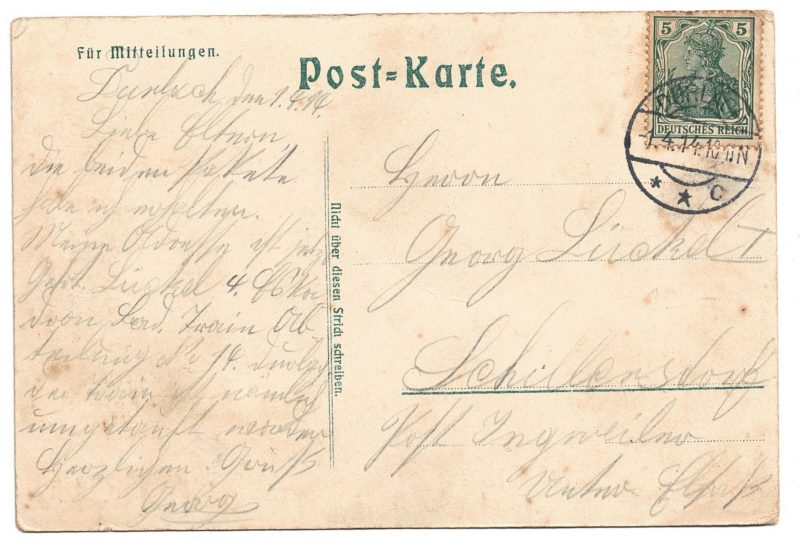 Für Mitteilungen.
Post-Karte.
Durlach, den 1.4.14.
Liebe Eltern,
die beiden Pakete
habe ich erhalten.
Meine Adresse ist jetzt
Gefr. Lückel 4. Eska
dron Bad. Train Ab
teilung No 14. Durlach
der train ist nämlich
umgetauft worden
Herzlichen Gruß
Georg
Nicht über diesen Strich schreiben.
5 5
DEUTSCHES REICH
DURLACH
1.4.14.
* * C
Herrn
Georg Lückel I
Schillersdorf
Post Ingweiler
Unter Elsaß